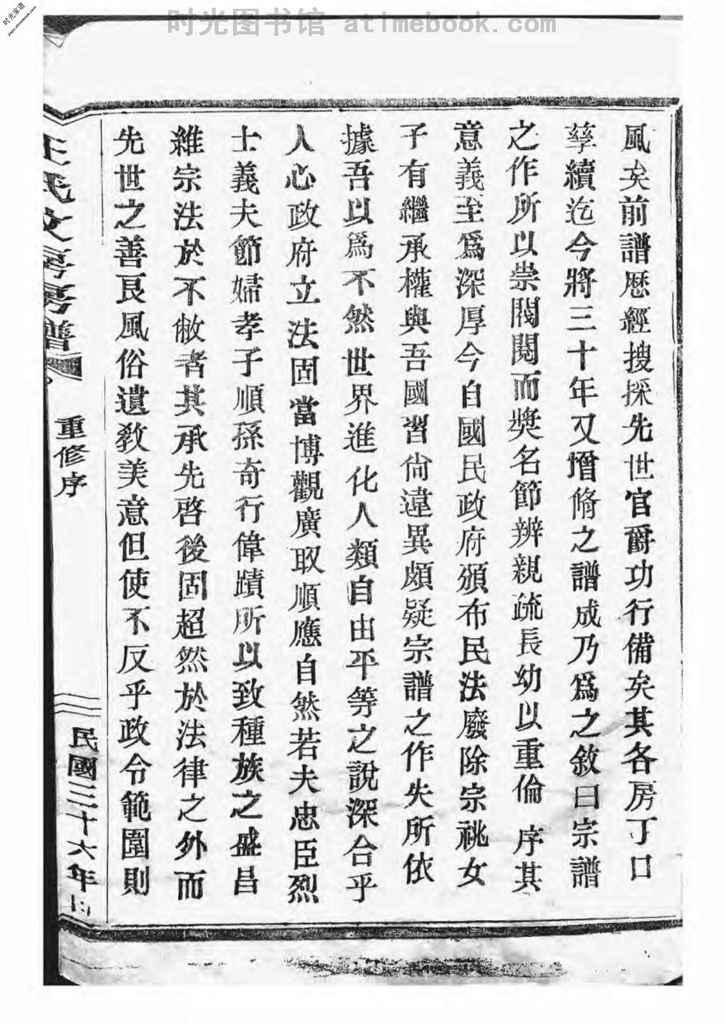 时光图书馆 atimebook.com
时光家谱
風矣前譜歷經搜採先世官爵功行備矣其各房丁口
孳續迄今將三十年又增脩之譜成乃爲之敘曰宗譜
之作所以崇閥閱而奬名節辨親疏長幼以重倫序其
意義至爲深厚今自國民政府頒布民法廢除宗祧女
子有繼承權與吾國習尙違異頗疑宗譜之作失所依
據吾以爲不然世界進化人類自由平等之說深合乎
人心政府立法固當博觀廣取順應自然若夫忠臣烈
士義夫節婦孝子順孫奇行偉蹟所以致種族之盛昌
維宗法於不敝者其承先啓後固超然於法律之外而
先世之善良風俗遺敎美意但使不反乎政令範圍則
氏文房房譜
重修序
民國三十六年